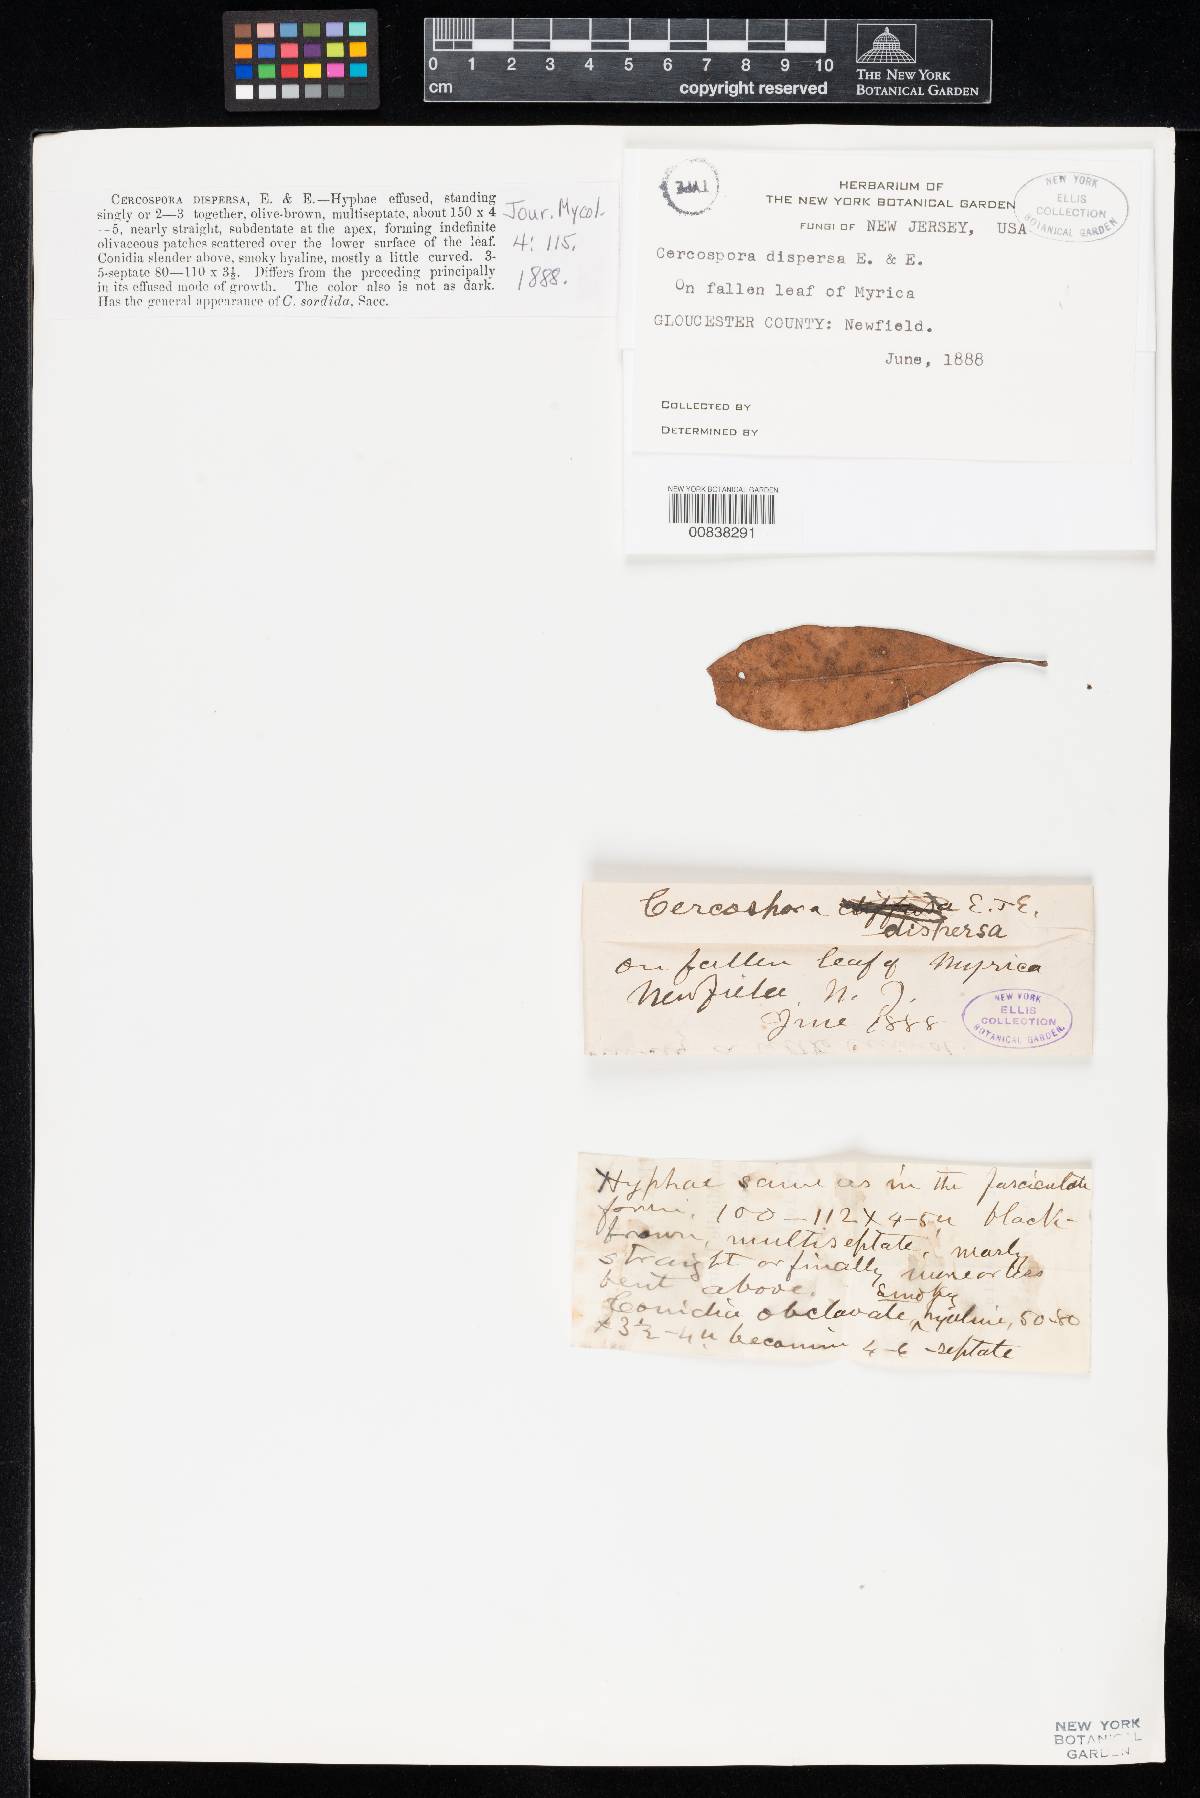 0 1 2 3 4 5 6 7 8 9 10
cm
copyright reserved
THE NEW YORK
BOTANICAL GARDEN
CERCOSPORA DISPERSA, E. & E.—Hyphae effused, standing
singly or 2—3 together, olive-brown, multiseptate, about 150 x 4
—5, nearly straight, subdentate at the apex, forming indefinite
olivaceous patches scattered over the lower surface of the leaf.
Conidia slender above, smoky hyaline, mostly a little curved. 3-
5-septate 80—110 x 3½. Differs from the preceding principally
in its effused mode of growth. The color also is not as dark.
Has the general appearance of C. sordida, Sacc.
Jour. Mycol.
4: 115.
1888.
TYPE
HERBARIUM OF
THE NEW YORK BOTANICAL GARDEN
FUNGI OF NEW JERSEY, USA
NEW YORK
ELLIS
COLLECTION
BOTANICAL GARDEN
Cercospora dispersa E. & E.
On fallen leaf of Myrica
GLOUCESTER COUNTY: Newfield.
June, 1888
COLLECTED BY
DETERMINED BY
NEW YORK BOTANICAL GARDEN
00838291
Cercospora diffusa E. & E.
dispersa
on fallen leaf of Myrica
Newfield, N. J.
June 1888
NEW YORK
ELLIS
COLLECTION
BOTANICAL GARDEN.
Hyphae same as in the fasciculate
form, 100–112 x 4-5µ black-
brown, multiseptate, nearly
straight or finally more or less
bent above.
smoky
Conidia obclavate, ^ hyaline, 50-80
x 3½-4µ becoming 4-6-septate
NEW YORK
BOTANICAL
GARDEN